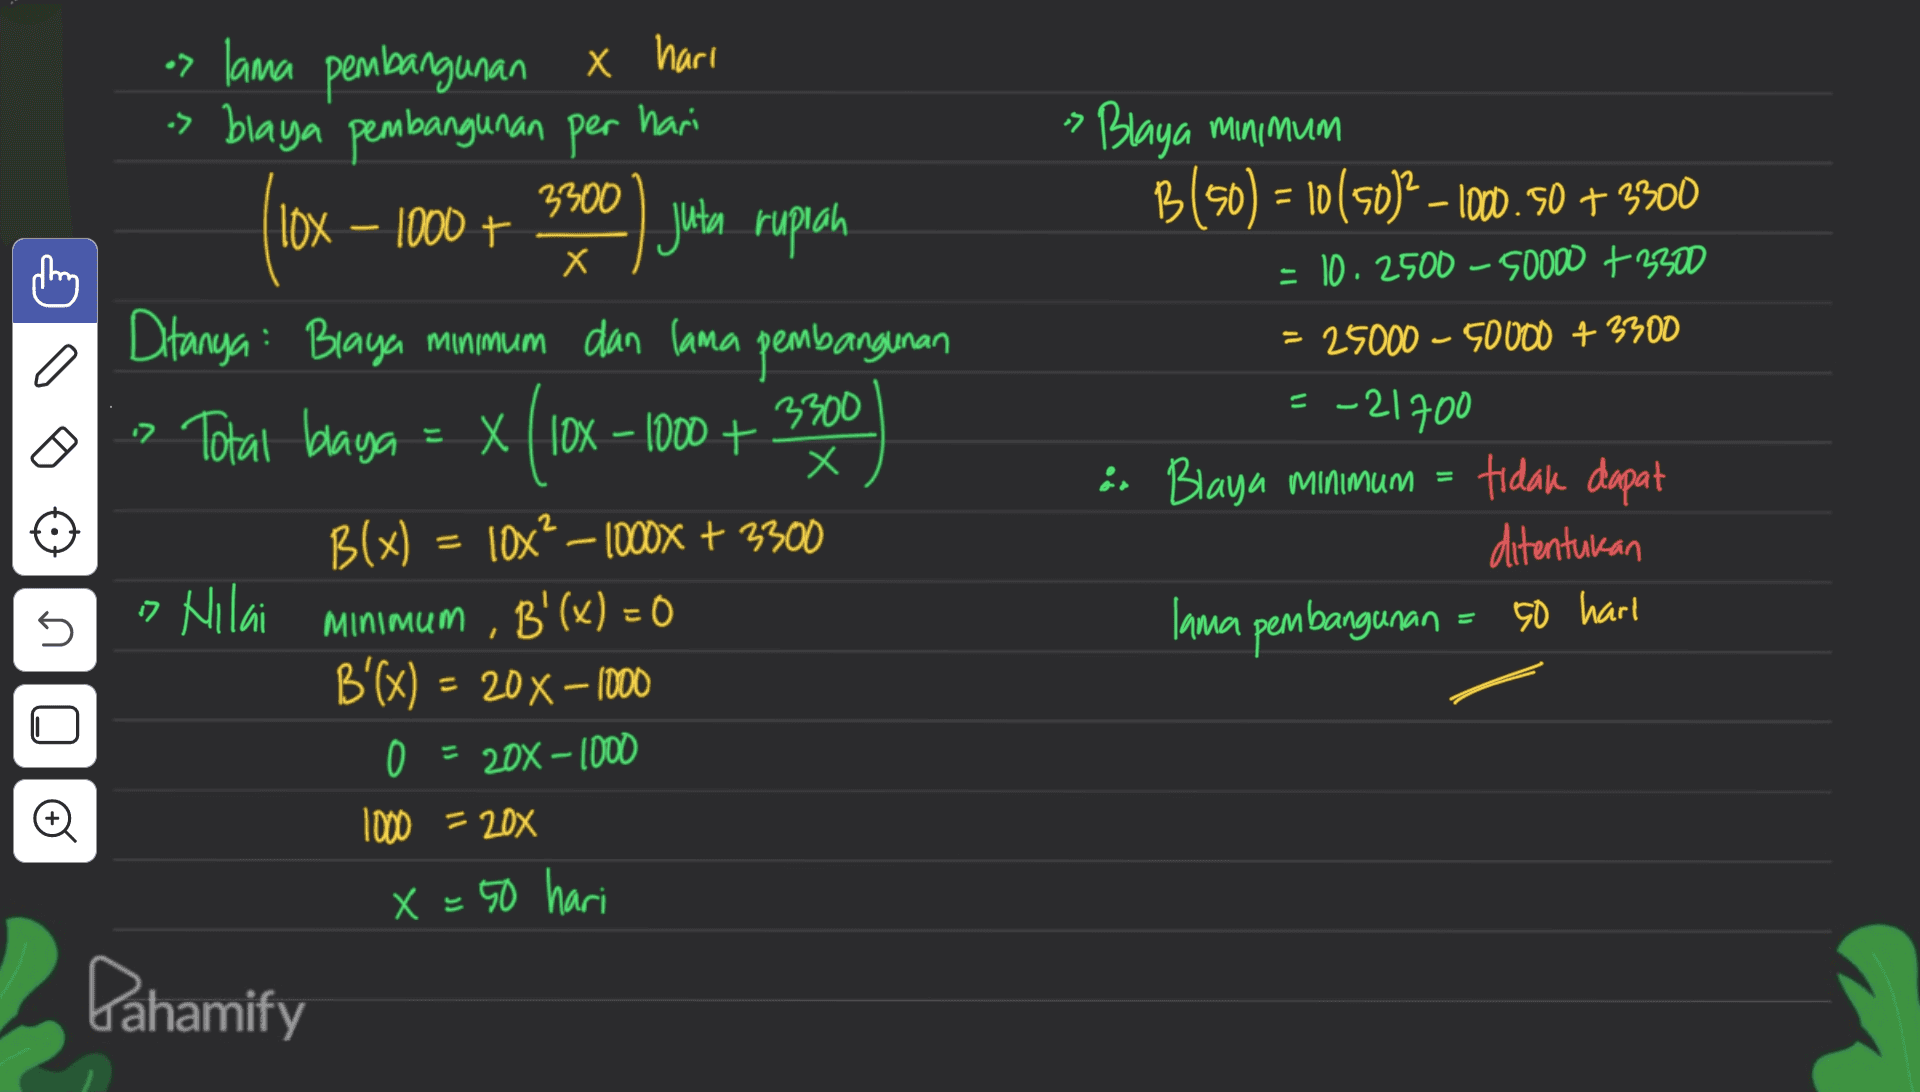 -> lama pembangunan x hari
-> biaya pembangunan per hari
(10x – 1000 + 3300/x) juta rupiah
Ditanya: Biaya minimum dan lama pembangunan
-> Total biaya = x (10x – 1000 + 3300/x)
B(x) = 10x² – 1000x + 3300
-> Nilai minimum, B'(x) = 0
B'(x) = 20x – 1000
0 = 20x – 1000
1000 = 20x
x = 50 hari
-> Biaya minimum
B(50) = 10(50)² – 1000.50 + 3300
= 10. 2500 – 50000 + 3300
= 25000 – 50000 + 3300
= -21700
∴ Biaya minimum = tidak dapat
ditentukan
lama pembangunan = 50 hari
Pahamify